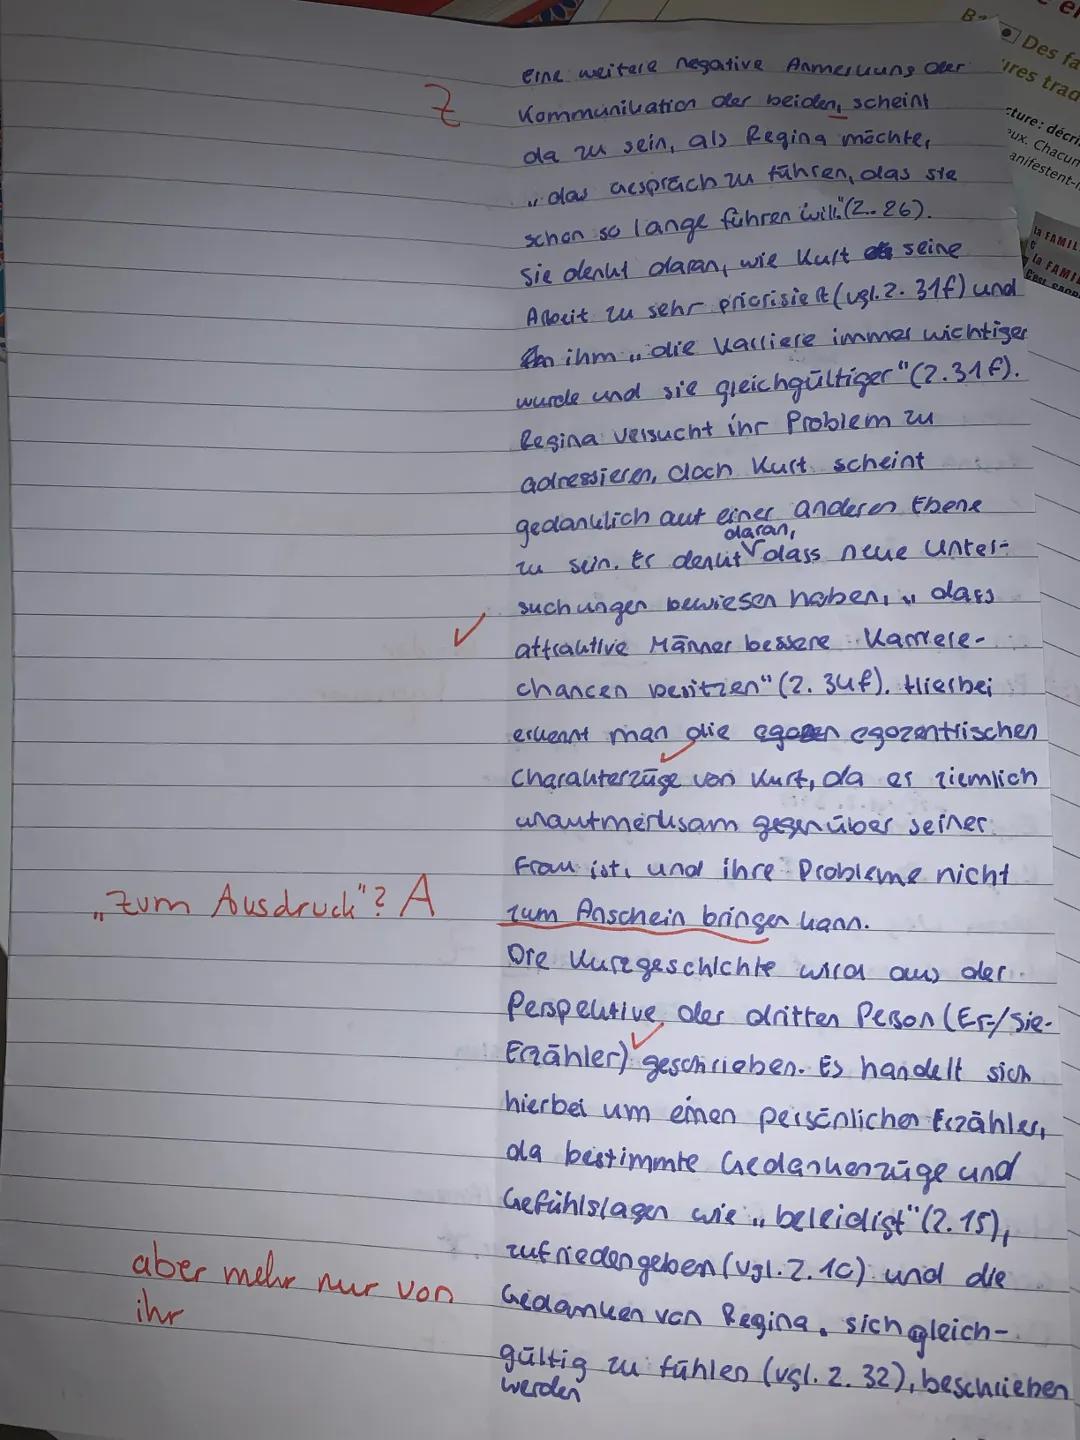 eine weitere negative Anmerkung der
Z
Kommunikation der beiden, scheint
da zu sein, als Regina möchte,
„das Gespräch zu führen, das sie
schon so lange führen will."(Z.. 26).
Sie denkt daran, wie Kurt seine
Arbeit zu sehr priorisiert (vgl. Z. 31f) und
ihm „die Karriere immer wichtiger
wurde und sie gleichgültiger" (Z. 31f).
Regina versucht ihr Problem zu
adressieren, doch Kurt scheint
gedanklich auf einer anderen Ebene
daran,
zu sein. Er denkt dass neue Unter-
suchungen bewiesen haben, „dass
attraktive Männer bessere Karriere-
chancen besitzen" (Z. 34f). Hierbei
erkennt man die egozentrischen
Charakterzüge von Kurt, da er ziemlich
unaufmerksam gegenüber seiner
Frau ist, und ihre Probleme nicht
„zum Ausdruck"? A
zum Anschein bringen kann.
Die Kurzgeschichte wird aus der
Perspektive der dritten Person (Er-/Sie-
Erzähler) geschrieben. Es handelt sich
hierbei um einen persönlichen Erzähler,
da bestimmte Gedankenzüge und
Gefühlslagen wie „beleidigt" (Z. 15),
zufriedengeben (vgl. Z. 10) und die
aber mehr nur von
ihr
Gedanken von Regina, sich gleich-
gültig zu fühlen (vgl. Z. 32), beschrieben
werden
Des fa
ires trad
cture: décri
eux. Chacun
anifestent-
la FAMIL
la FAMIL